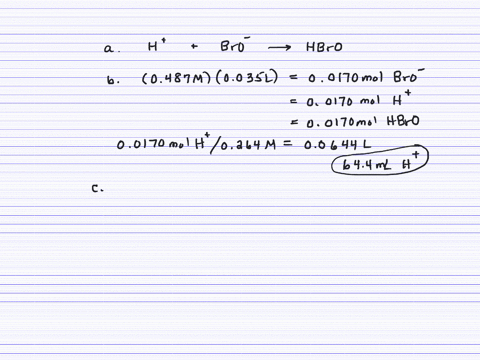 a. H⁺ + BrO⁻ → HBrO
b. (0.487M)(0.035L) = 0.0170mol BrO⁻
= 0.0170 mol H⁺
= 0.0170mol HBrO
0.0170mol H⁺/0.264M = 0.0644 L
64.4mL H⁺
c.